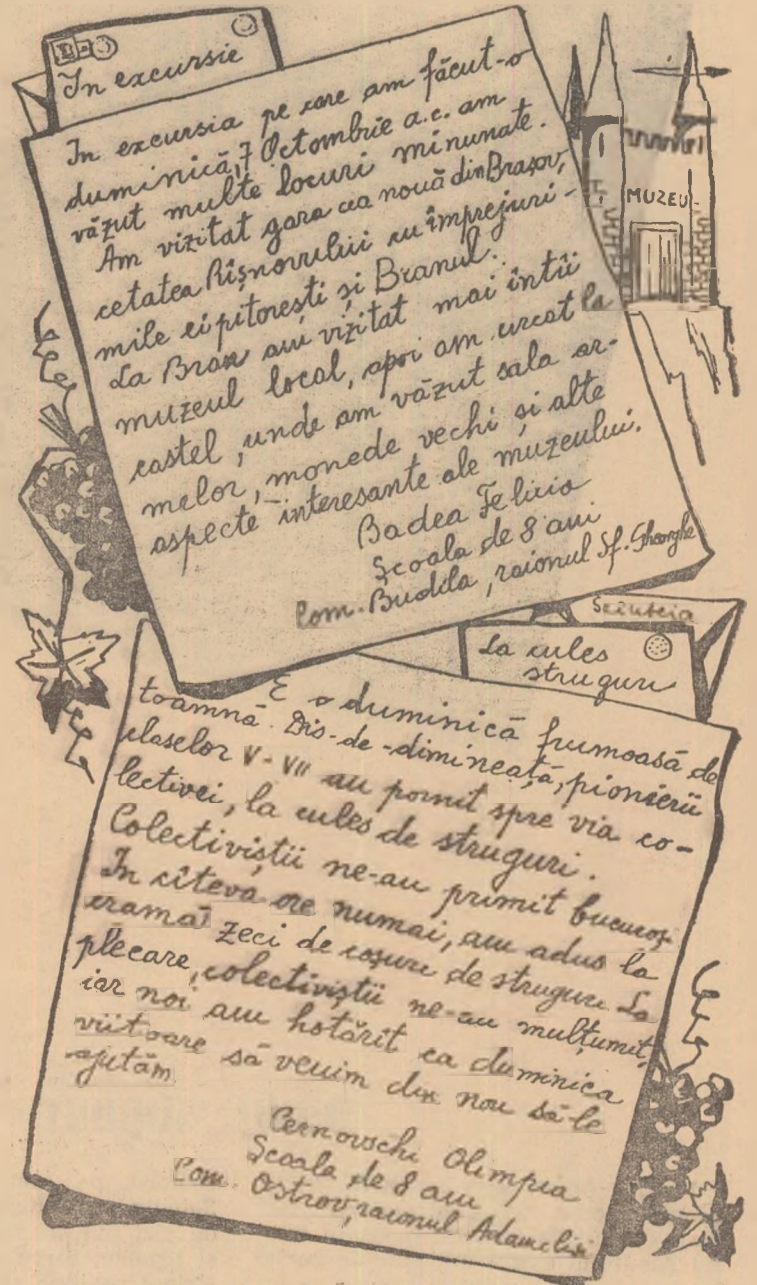 In excursie
In excursia pe care am făcut-o
duminică, 7 Octombrie a.c. am
văzut multe locuri minunate.
Am vizitat gara cea nouă din Brașov,
cetatea Rîșnovului cu împrejuri-
mile ei pitorești și Branul.
La Bran am vizitat mai întîi
muzeul local, apoi am urcat la
castel, unde am văzut sala ar-
melor, monede vechi și alte
aspecte interesante ale muzeului.
Badea Felicia
Școala de 8 ani
Com. Budila, raionul Sf. Gheorghe
MUZEU
Scînteia
La cules
struguri
E o duminică frumoasă de
toamnă. Dis-de-dimineață, pionierii
claselor V-VII au pornit spre via co-
lectivei, la cules de struguri.
Colectiviștii ne-au primit bucuroși.
In cîteva ore numai, am adus la
cramă zeci de coșuri de struguri. La
plecare, colectiviștii ne-au mulțumit,
iar noi am hotărît ca duminica
viitoare să venim din nou să-le
ajutăm
Cernovschi Olimpia
Școala de 8 ani
Com. Ostrov, raionul Adamclisi